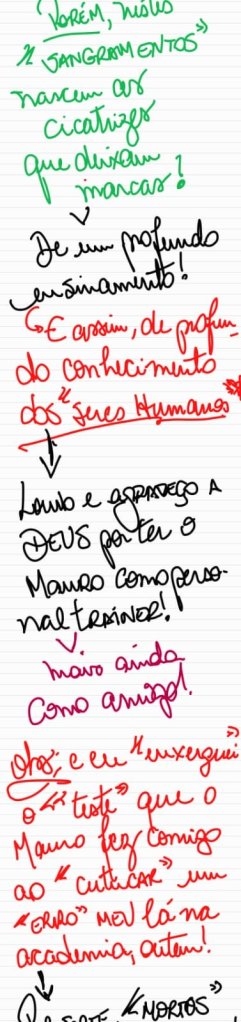 PORÉM, nestes
"SANGRAMENTOS"
nascem as
cicatrizes
que deixam
marcas!
De um profundo
ensinamento!
E assim, de profun-
do conhecimento
dos "Seres Humanos"
Louvo e AGRADEÇO A
DEUS por ter o
Mauro como perso-
nal TRAINER!
maior ainda
como amigo!
Obs; e eu "enxerguei"
o "teste" que o
Mauro fez comigo
ao "cutucar" um
"ERRO" MEU lá na
academia, ontem!
"MORTOS"